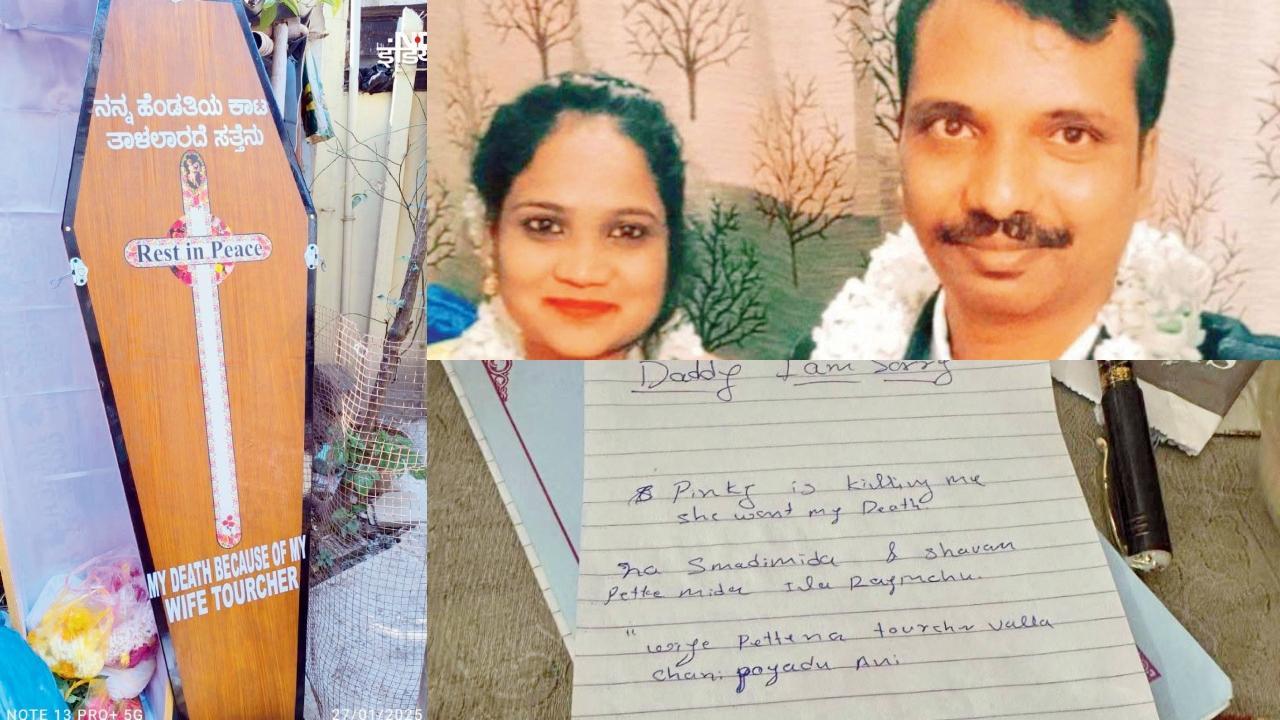 ನನ್ನ ಹೆಂಡತಿಯ ಕಾಟ
ತಾಳಲಾರದೆ ಸತ್ತೆನು
Rest in Peace
MY DEATH BECAUSE OF MY
WIFE TOURCHER
NOTE 13 PRO+ 5G
27/01/2025
Daddy I am Sorry
Pinky is killing me
she want my Death
na Smadimida & shavam
Pettke mida Ila Raymchu.
" Pettena tourchr valla
chani poyadu Ani